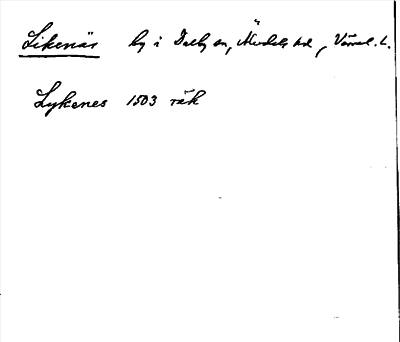 Likenäs by i Dalby sn, Älvdals hd, Värml. l.
Lykenes 1503 räk